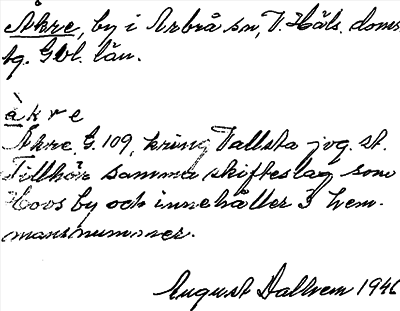 Åkre, by i Arbrå sn, V. Häls. doms.
tg. Gbl. län.
àkre
Åkre, G. 109, kring Vallsta jvg. st.
Tillhör samma skifteslag som
Hovs by och innehåller 3 hem-
mansnummer.
August Dallvem 1946